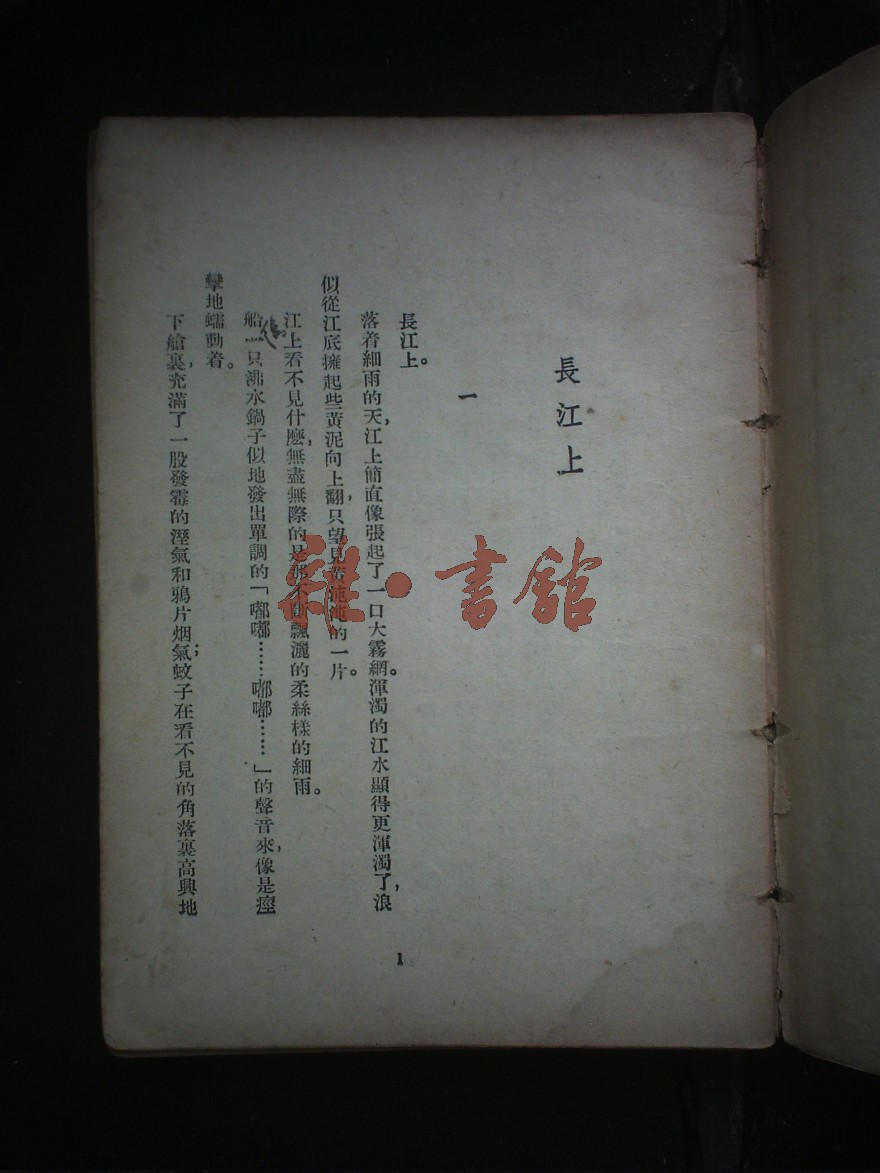 長江上
一
長江上。
落着細雨的天，江上簡直像張起了一口大霧網。渾濁的江水顯得更渾濁了，浪
似從江底擁起些黃泥向上翻，只望見黃沌沌的一片。
江上看不見什麽，無盡無際的是那不斷飄灑的柔絲樣的細雨。
船一只沸水鍋子似地發出單調的「嘟嘟……嘟嘟……」的聲音來，像是痙
攣地蠕動着。
下艙裏，充滿了一股發霉的溼氣和鴉片烟氣；蚊子在看不見的角落裏高興地
1
雜·書館